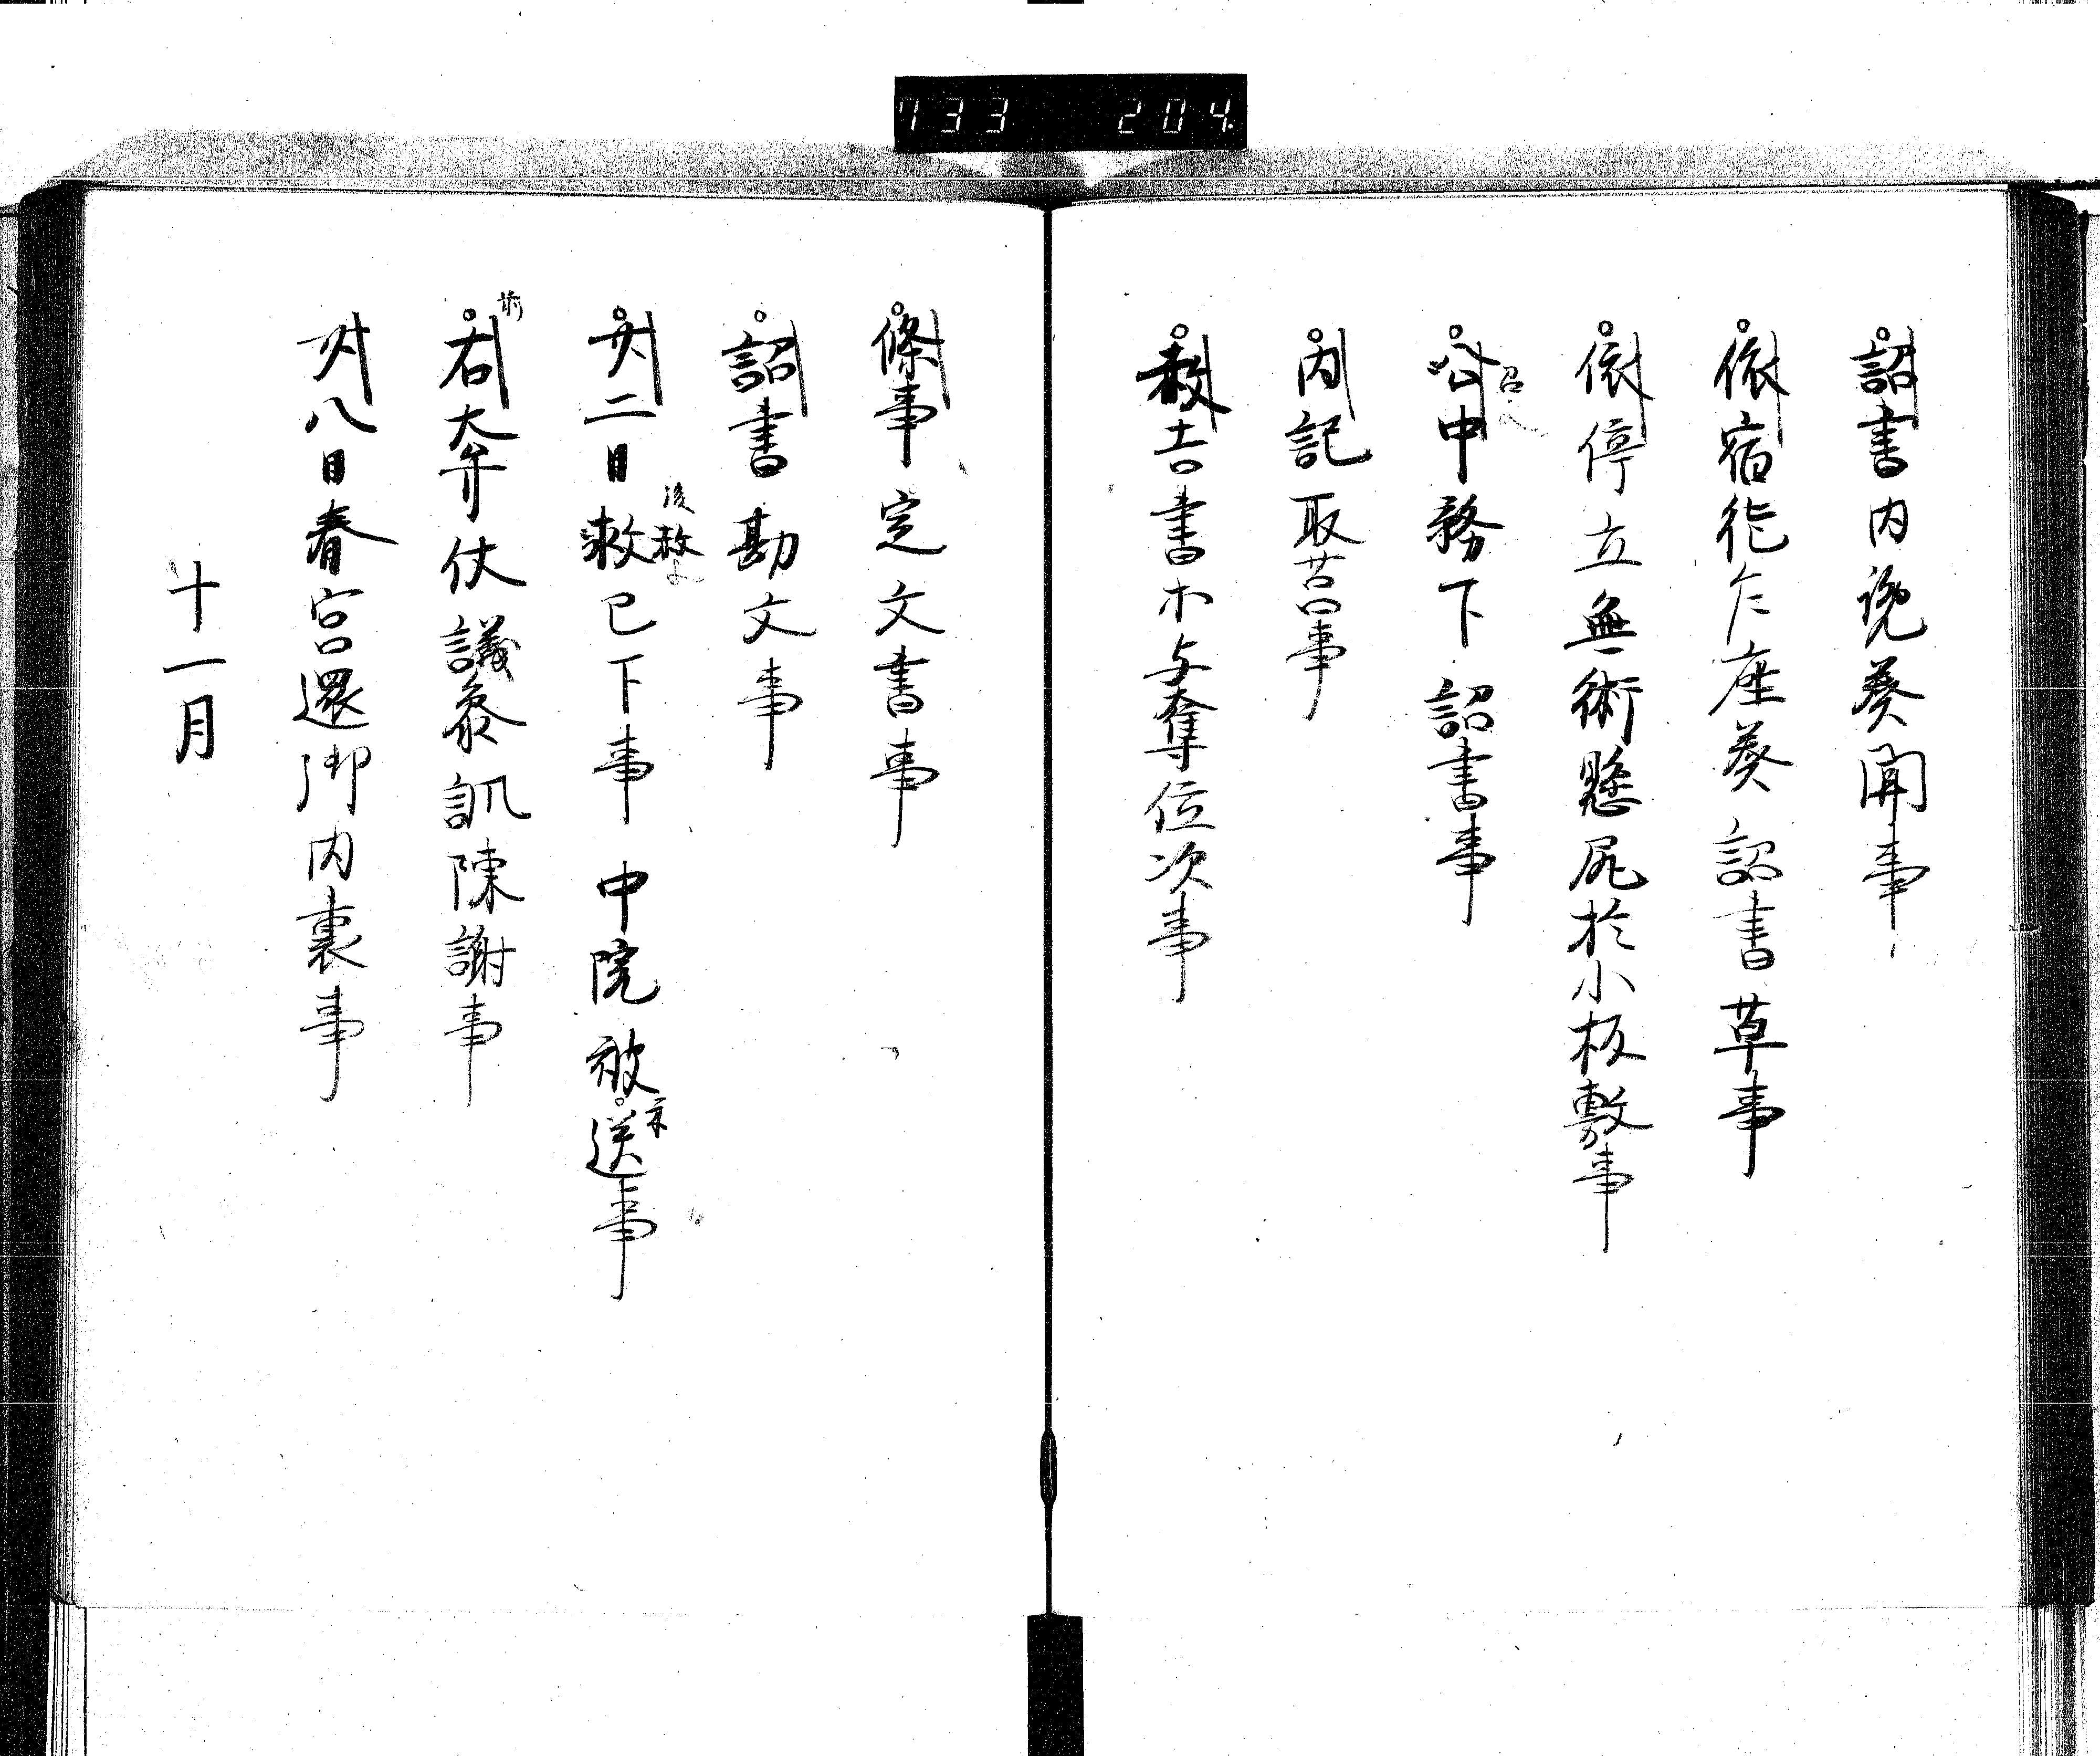 733 204
詔書内覧奏聞事
依宿徳乍座奏詔書草事
依停立無術懸尻於小板敷事
召
公中務下詔書事
内記取筥事
赦吉書木与奪位次事
條事定文書事
詔書勘文事
廿二日赦已下事 中院被送事
後赦
示
前
右大弁仗議参訊陳謝事
廿八日春宮還御内裏事
十一月